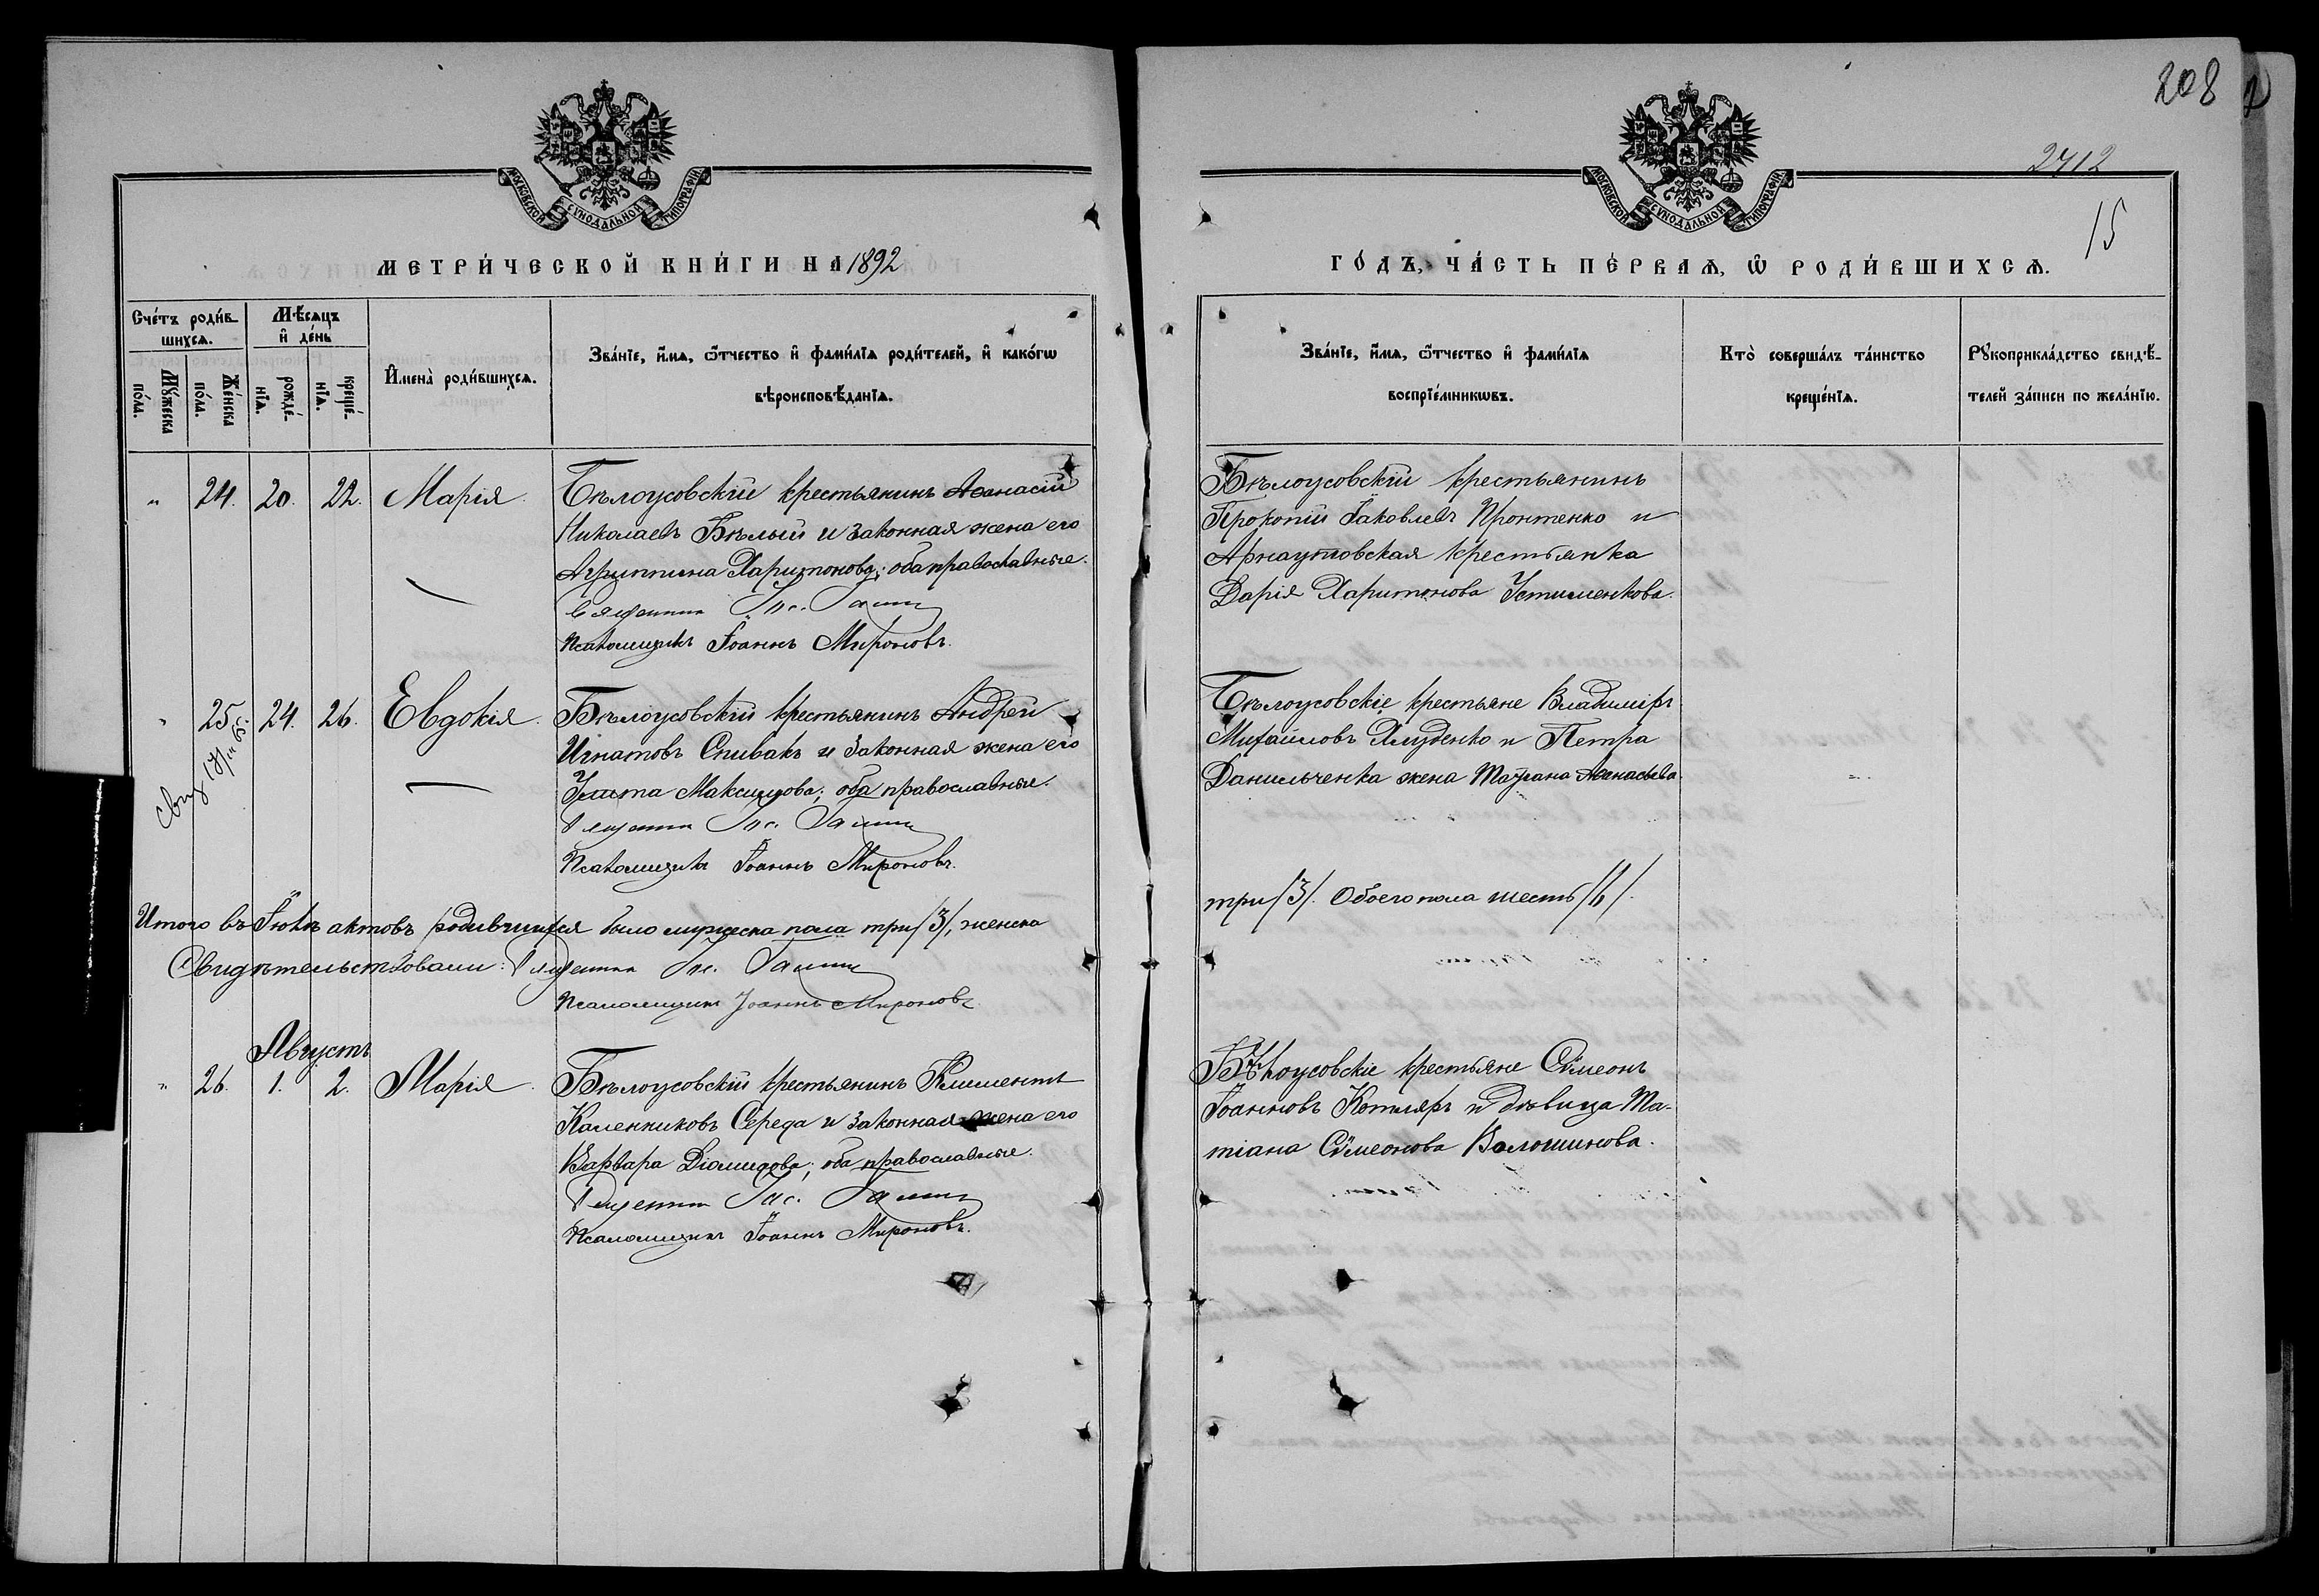 208
2712
15
МОСКОВСКОЙ СѴНОДАЛЬНОЙ ТИПОГРАФІИ
МОСКОВСКОЙ СѴНОДАЛЬНОЙ ТИПОГРАФІИ
МЕТРИ́ЧЕСКОЙ КНИ́ГИ НА 1892
ГО́ДЪ, ЧА́СТЬ ПЕ́РВАѦ, Ѡ҆ РОДИ́ВШИХСѦ.
Сче́тъ роди́в-
шихсѧ.
Мꙋ́жеска по́ла.
Же́нска по́ла.
Мѣ́сѧцъ
и҆ де́нь
рожде́-нїѧ.
креще́-нїѧ.
И҆мена̀ роди́вшихсѧ.
Зва́нїе, и҆́мѧ, ѻ҆́тчество и҆ фами́лїѧ роди́телей, и҆ како́гѡ
вѣроисповѣ́данїѧ.
Зва́нїе, и҆́мѧ, ѻ҆́тчество и҆ фами́лїѧ
воспрїе́мникѡвъ.
Кто̀ соверша́лъ та́инство
креще́нїѧ.
Рꙋкоприкла́дство свидѣ́-
телей за́писи по жела́нїю.
" 24. 20. 22. Марія.
Бѣлоусовскій крестьянинъ Аѳанасій
Николаевъ Бѣлый и законная жена его
Агриппина Харитонова; оба православные.
Священникъ
Псаломщикъ Іоаннъ Мироновъ.
Бѣлоусовскій крестьянинъ
Прокопій Іаковлевъ Пронтенко и
Арнаутовская крестьянка
Дарія Харитонова Устименкова.
" 25. 24. 26. Евдокія.
Бѣлоусовскій крестьянинъ Андрей
Игнатовъ Спивакъ и законная жена его
Улита Максимова; оба православные.
Священникъ
Псаломщикъ Іоаннъ Мироновъ.
Бѣлоусовскіе крестьяне Владиміръ
Михайловъ Хлуденко и Петра
Данильченка жена Татіана Аѳанасьева.
Итого въ Іюлѣ актовъ родившихся было мужеска пола три /3/, женска
три /3/. Обоего пола шесть /6/.
Свидѣтельствовали: Священникъ
Псаломщикъ Іоаннъ Мироновъ
Августъ
" 26. 1. 2. Марія.
Бѣлоусовскій крестьянинъ Климентъ
Каленниковъ Середа и законная жена его
Варвара Діомидова; оба православные.
Священникъ
Псаломщикъ Іоаннъ Мироновъ.
Бѣлоусовскіе крестьяне Сѵмеонъ
Іоанновъ Котляръ и дѣвица Та-
тіана Сѵмеонова Волошинова.